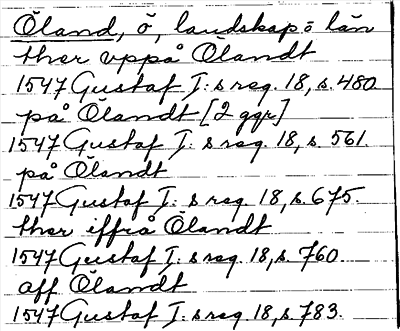 Öland, ö, landskap o län
ther uppå Ölandt
1547 Gustaf I:s reg. 18, s. 480
på Ölandt [2 ggr]
1547 Gustaf I:s reg. 18, s. 561.
på Ölandt
1547 Gustaf I:s reg. 18, s. 675.
ther iffrå Ölandt
1547 Gustaf I:s reg. 18, s. 760
aff Ölandt
1547 Gustaf I:s reg. 18, s. 783.